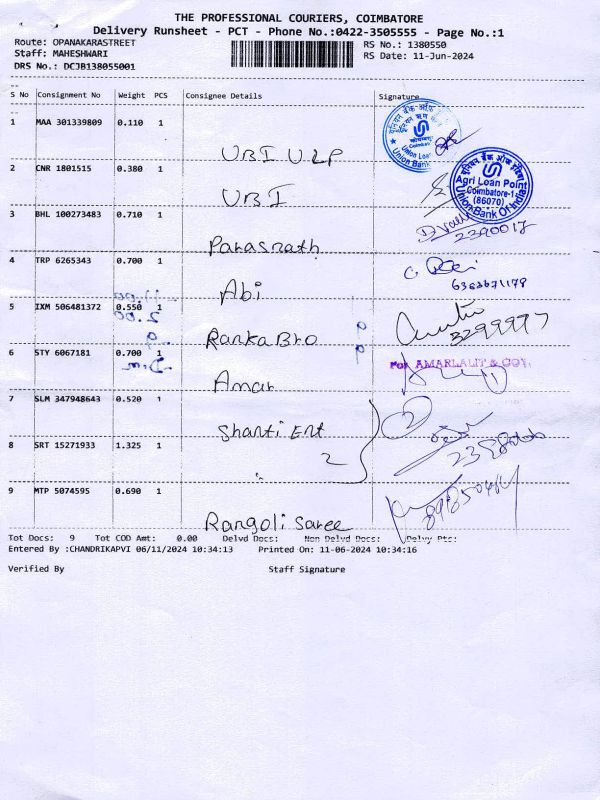 THE PROFESSIONAL COURIERS, COIMBATORE
Delivery Runsheet - PCT - Phone No.:0422-3505555 - Page No.:1
Route: OPANAKARASTREET
RS No.: 1380550
Staff: MAHESHWARI
RS Date: 11-Jun-2024
DRS No.: DCJB138055001
S No Consignment No Weight PCS Consignee Details Signature
1 MAA 301339809 0.110 1
UBI ULP
2 CNR 1801515 0.380 1
Agri Loan Point
Coimbatore-1
(86070)
Union Bank Of India
UBI
3 BHL 100273483 0.710 1
2390017
Parasnath
4 TRP 6265343 0.700 1
6363671178
Abi
5 IXM 506481372 0.550 1
3299997
Ranka Bro
6 STY 6067181 0.700 1
For AMARLALIT & COY.
Amar
7 SLM 347948643 0.520 1
2
Shanti Ent
8 SRT 15271933 1.325 1
2
9 MTP 5074595 0.690 1
Rangoli Saree
Tot Docs: 9 Tot COD Amt: 0.00 Delvd Docs: Non Delvd Docs: Delvy Pts:
Entered By :CHANDRIKAPVI 06/11/2024 10:34:13 Printed On: 11-06-2024 10:34:16
Verified By Staff Signature